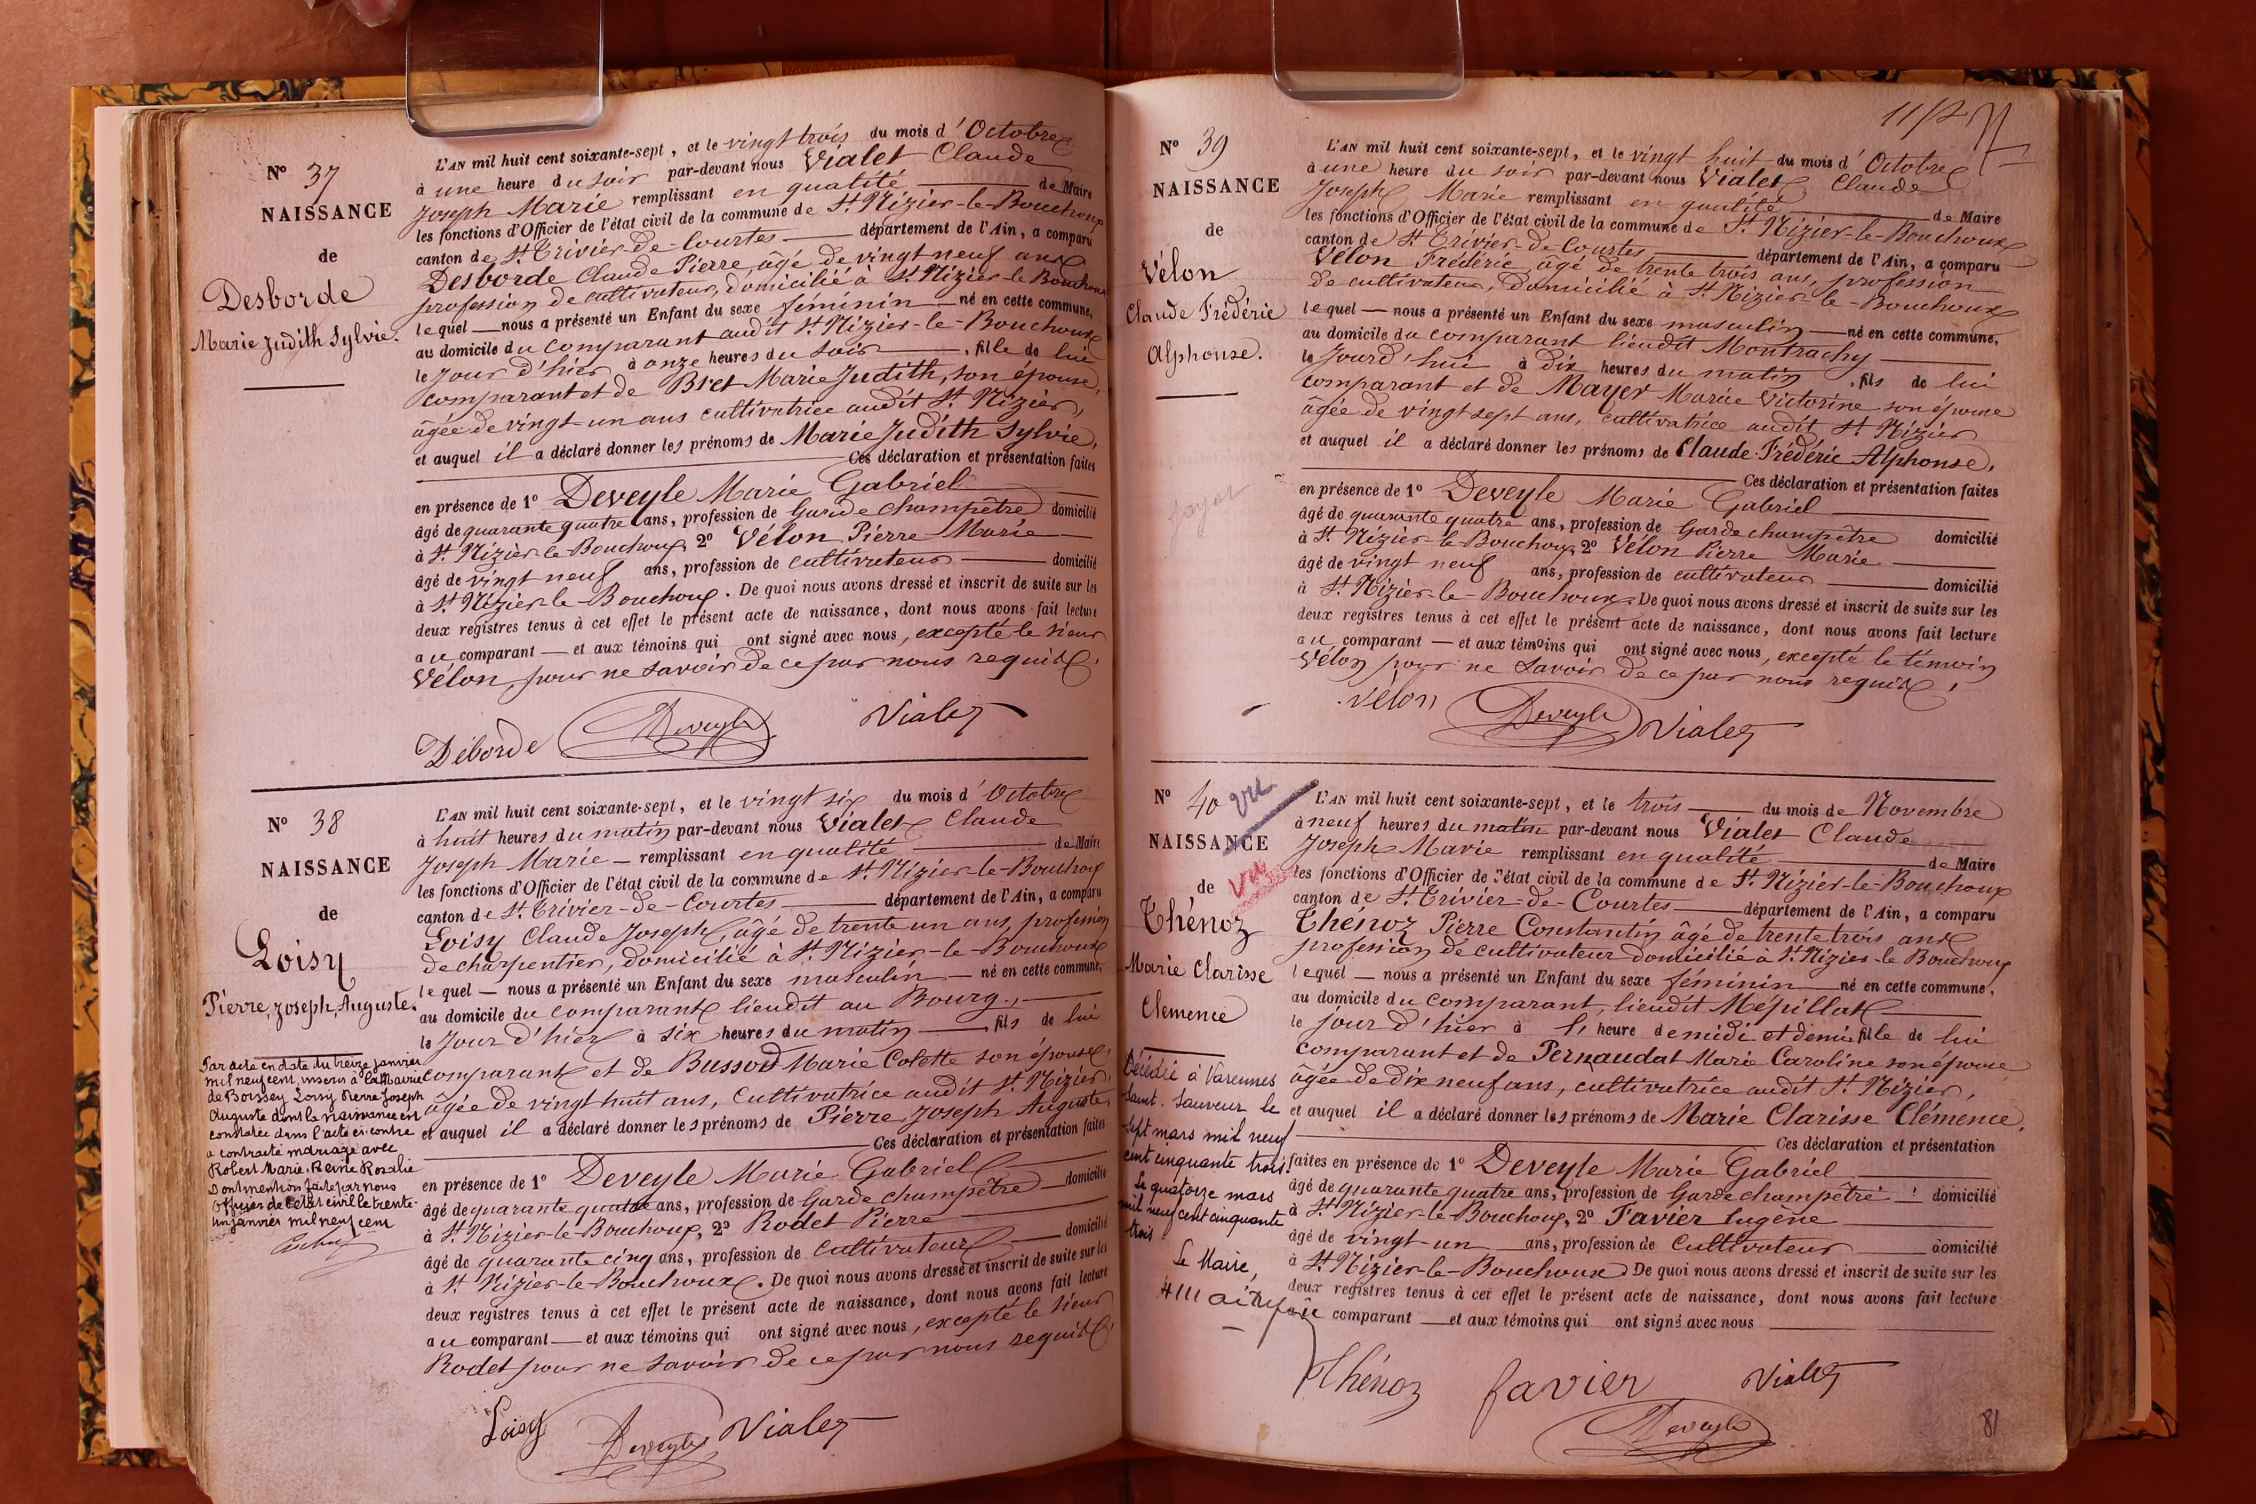 N° 37
NAISSANCE
de
Desborde
Marie Judith Sylvie.
L'AN mil huit cent soixante-sept, et le vingt trois du mois d'Octobre
à une heure du soir par-devant nous Vialet Claude
Joseph Marie remplissant en qualité de Maire
les fonctions d'Officier de l'état civil de la commune de St Nizier-le-Bouchoux
canton de St Trivier-de-Courtes département de l'Ain, a comparu
Desborde Claude Pierre âgé de vingt neuf ans
profession de cultivateur, domicilié à St Nizier-le-Bouchoux
lequel — nous a présenté un Enfant du sexe féminin — né en cette commune,
au domicile du comparant audit St Nizier-le-Bouchoux
le jour d'hier à onze heures du soir, fille de lui
comparant et de Bret Marie Judith, son épouse,
âgée de vingt-un ans cultivatrice audit St Nizier,
et auquel il a déclaré donner les prénoms de Marie Judith Sylvie,
Ces déclaration et présentation faites
en présence de 1° Deveyle Marie Gabriel
âgé de quarante quatre ans, profession de Garde champêtre domicilié
à St Nizier-le-Bouchoux, 2° Vélon Pierre Marie
âgé de vingt neuf ans, profession de cultivateur domicilié
à St Nizier-le-Bouchoux. De quoi nous avons dressé et inscrit de suite sur les
deux registres tenus à cet effet le présent acte de naissance, dont nous avons fait lecture
au comparant — et aux témoins qui ont signé avec nous, excepté le sieur
Vélon, pour ne savoir de ce par nous requis.
Déborde Deveyle Vialet
N° 38
NAISSANCE
de
Loisy
Pierre, Joseph, Auguste.
Par acte en date du treize janvier
mil neuf cent, inscrit à la Mairie
de Boissey Loisy Pierre Joseph
Auguste dont la naissance est
constatée dans l'acte ci-contre
a contracté mariage avec
Robert Marie Reine Rosalie
Dont mention faite par nous
officier de l'état civil le trente-
un janvier mil neuf cent
L'AN mil huit cent soixante-sept, et le vingt six du mois d'Octobre
à huit heures du matin par-devant nous Vialet Claude
Joseph Marie — remplissant en qualité de Maire
les fonctions d'Officier de l'état civil de la commune de St Nizier-le-Bouchoux
canton de St Trivier-de-Courtes département de l'Ain, a comparu
Loisy Claude Joseph, âgé de trente un ans, profession
de charpentier, domicilié à St Nizier-le-Bouchoux
lequel — nous a présenté un Enfant du sexe masculin — né en cette commune,
au domicile du comparant lieudit au Bourg,
le jour d'hier à six heures du matin fils de lui
comparant et de Bussod Marie Colette son épouse,
âgée de vingt huit ans, cultivatrice audit St Nizier,
et auquel il a déclaré donner les prénoms de Pierre Joseph Auguste,
Ces déclaration et présentation faites
en présence de 1° Deveyle Marie Gabriel
âgé de quarante quatre ans, profession de Garde champêtre domicilié
à St Nizier-le-Bouchoux, 2° Rodet Pierre
âgé de quarante cinq ans, profession de cultivateur domicilié
à St Nizier-le-Bouchoux. De quoi nous avons dressé et inscrit de suite sur les
deux registres tenus à cet effet le présent acte de naissance, dont nous avons fait lecture
au comparant — et aux témoins qui ont signé avec nous, excepté le sieur
Rodet pour ne savoir de ce par nous requis.
Loisy Deveyle Vialet
N° 39
NAISSANCE
de
Vélon
Claude Frédéric
Alphonse.
L'AN mil huit cent soixante-sept, et le vingt huit du mois d'Octobre
à une heure du soir par-devant nous Vialet Claude
Joseph Marie remplissant en qualité de Maire
les fonctions d'Officier de l'état civil de la commune de St Nizier-le-Bouchoux
canton de St Trivier-de-Courtes département de l'Ain, a comparu
Vélon Frédéric âgé de trente trois ans, profession
de cultivateur, domicilié à St Nizier-le-Bouchoux
lequel — nous a présenté un Enfant du sexe masculin — né en cette commune,
au domicile du comparant lieudit Montrachy
le jourd'hui à dix heures du matin, fils de lui
comparant et de Mayer Marie Victorine son épouse
âgée de vingt sept ans, cultivatrice audit St Nizier
et auquel il a déclaré donner les prénoms de Claude Frédéric Alphonse,
Ces déclaration et présentation faites
en présence de 1° Deveyle Marie Gabriel
âgé de quarante quatre ans, profession de Garde champêtre domicilié
à St Nizier-le-Bouchoux, 2° Vélon Pierre Marie
âgé de vingt neuf ans, profession de cultivateur domicilié
à St Nizier-le-Bouchoux. De quoi nous avons dressé et inscrit de suite sur les
deux registres tenus à cet effet le présent acte de naissance, dont nous avons fait lecture
au comparant — et aux témoins qui ont signé avec nous, excepté le témoin
Vélon pour ne savoir de ce par nous requis.
Vélon Deveyle Vialet
N° 40 vu
NAISSANCE
de vu
Thénoz
Marie Clarisse
Clemence
Décédée à Varennes
Saint-Sauveur le
sept mars mil neuf
cent cinquante trois.
Le quatorze mars
mil neuf cent cinquante
trois
Le Maire,
L'AN mil huit cent soixante-sept, et le trois du mois de Novembre
à neuf heures du matin par-devant nous Vialet Claude
Joseph Marie remplissant en qualité de Maire
les fonctions d'Officier de l'état civil de la commune de St Nizier-le-Bouchoux
canton de St Trivier-de-Courtes département de l'Ain, a comparu
Thénoz Pierre Constantin âgé de trente trois ans
profession de cultivateur domicilié à St Nizier-le Bouchoux
lequel — nous a présenté un Enfant du sexe féminin — né en cette commune,
au domicile du comparant, lieudit Mépillat
le jour d'hier à l'heure de midi et demi, fille de lui
comparant et de Pernaudat Marie Caroline son épouse
âgée de dix neuf ans, cultivatrice audit St Nizier,
et auquel il a déclaré donner les prénoms de Marie Clarisse Clémence,
Ces déclaration et présentation
faites en présence de 1° Deveyle Marie Gabriel
âgé de quarante quatre ans, profession de Garde champêtre domicilié
à St Nizier-le-Bouchoux, 2° Favier Eugène
âgé de vingt-un ans, profession de cultivateur domicilié
à St Nizier-le-Bouchoux. De quoi nous avons dressé et inscrit de suite sur les
deux registres tenus à cet effet le présent acte de naissance, dont nous avons fait lecture
au comparant — et aux témoins qui ont signé avec nous
Thénoz favier Vialet
Deveyle
81